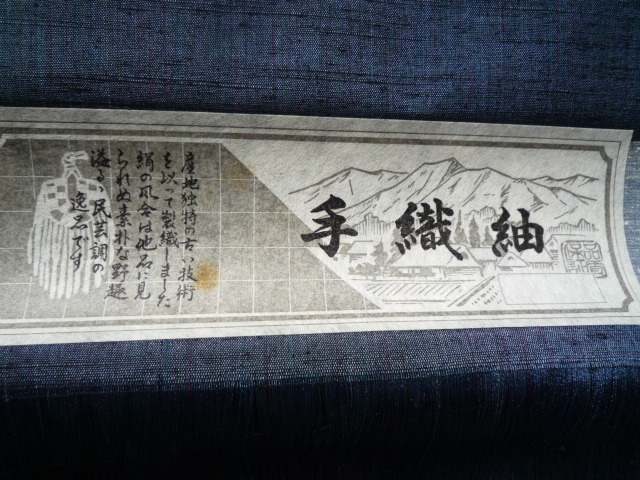 手織紬
産地独特の古い技術
を以って製織しました
絹の風合は他石に見
られぬ素朴な野趣
溢るゝ民芸調の
逸品です